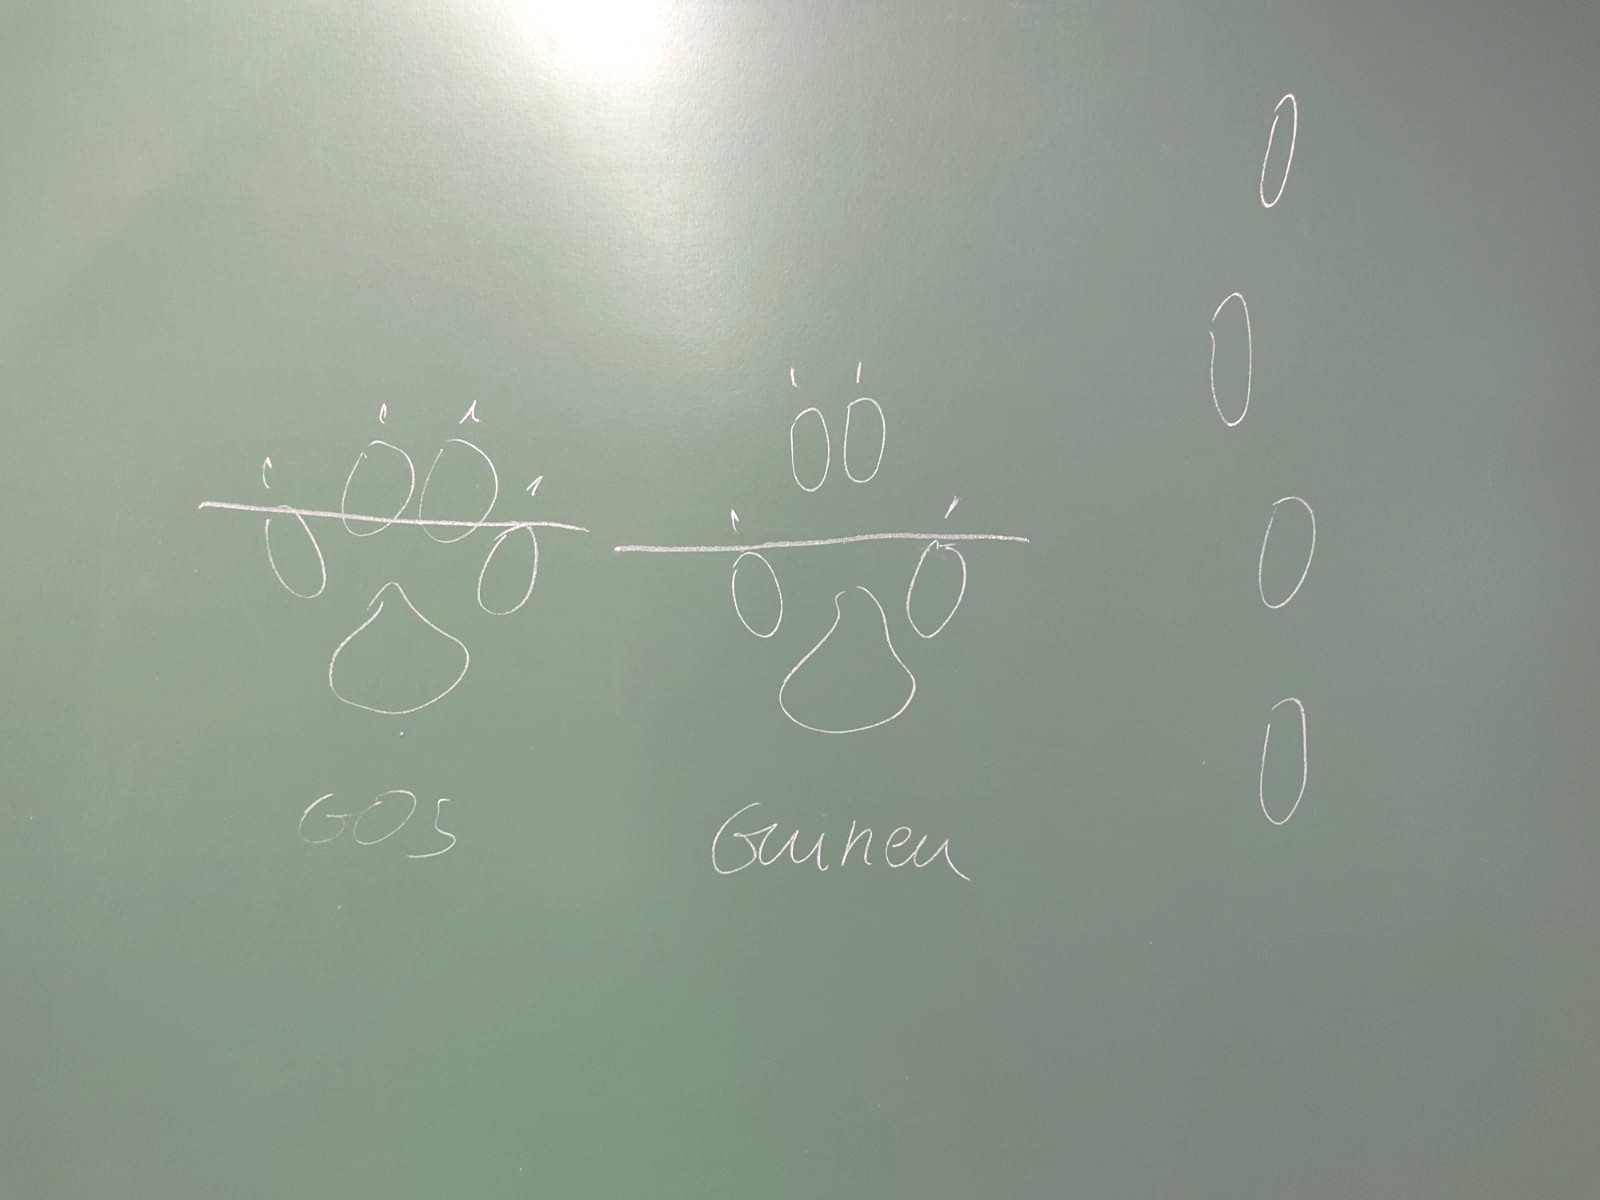 GOS
Guineu